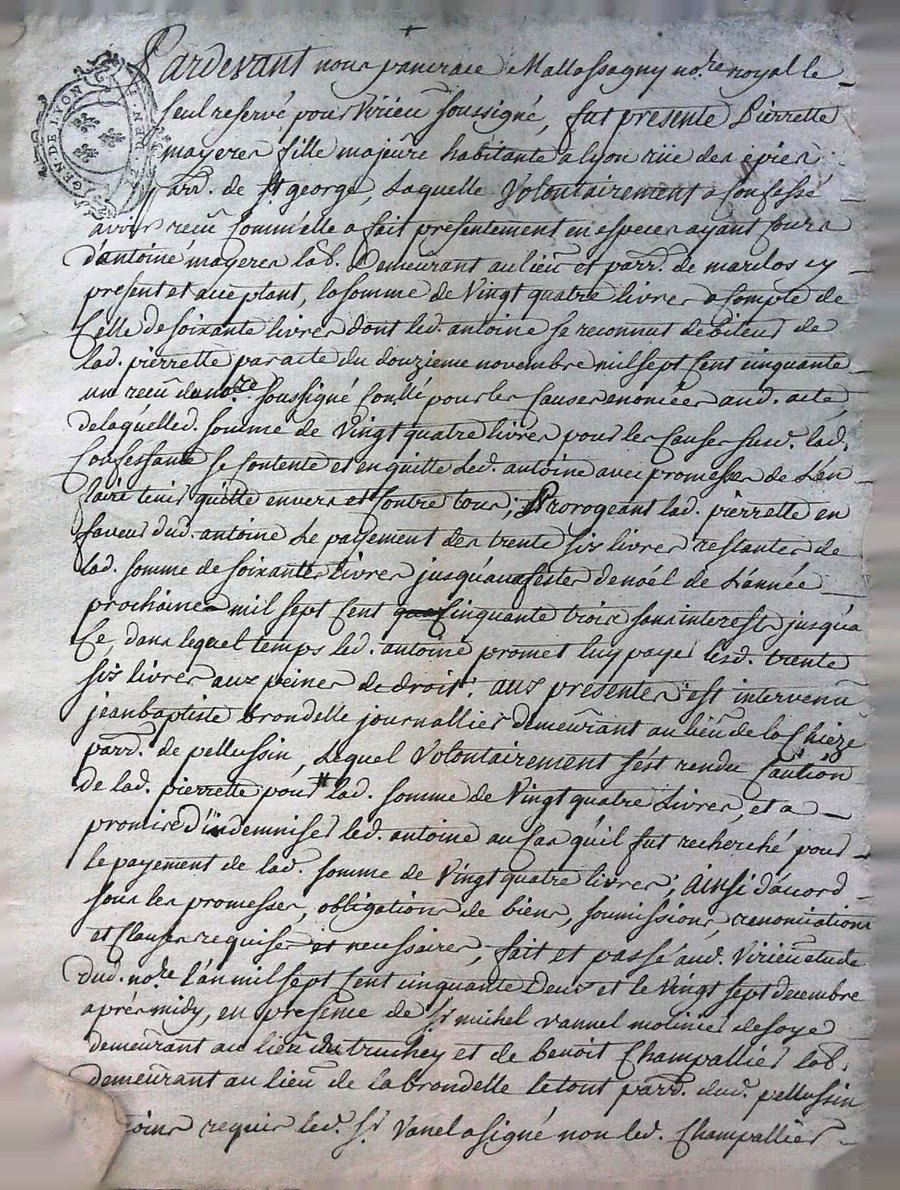 GEN. DE LYON
Pardevant nous pancrace Mallassagny no.re royal le
seul reservé pour Virieu soussigné, fut presente Pierrette
mayeres fille majeure habitante a lyon rüe des épies
parr. de St george, Laquelle Volontairement a Confessé
avoir recu Comm'elle a fait presentement en especes ayant Cours
d'antoine mayeres lab. Demeurant au lieu et parr. de marlos cy
present et acceptant, la somme de Vingt quatre livres a Compte de
Celle de soixante livres dont led. antoine se reconnut debiteur de
lad. pierrette par acte du douzieme novembre mil sept Cent cinquante
un recu du no.re soussigné Con.llé pour les Causes enoncées aud. acte
de laquelle d. somme de Vingt quatre livres pour les Causes susd. lad.
Confessante se Contente et en quitte Led. antoine avec promesse de L'en
faire tenir quitte envers et Contre tous; Prorogeant lad. pierrette en
faveur dud. antoine Le payement des trente six livres restantes de
lad. somme de soixante livres jusqu'aux festes de noél de L'année
prochaine mil sept Cent Cinquante trois sans interests jusqu'a
Ce, dans lequel temps led. antoine promet luy payer lesd. trente
six livres aux peines de droit; aux presentes est intervenu
jean baptiste brondelle journallier demeurant au lieu de la Chieze
parr. de pellussin, Lequel Volontairement s'est rendu Caution
de lad. pierrette pour lad. somme de Vingt quatre Livres, et a
promis d'indemniser led. antoine au Cas qu'il fut recherché pour
le payement de lad. somme de Vingt quatre livres; Ainsi d'acord
sous les promesses, obligations de biens, soumissions, renonciations
et Clauses requises et necessaires, fait et passé aud. Virieu etude
dud. no.re L'an mil sept Cent cinquante Deux et le Vingt sept decembre
aprés midy, en presence de Sr michel vannel molinier de soye
demeurant au lieu du truchey et de benoit Champallier lab.
demeurant au lieu de la brondelle le tout parr. dud. pellussin
requis led. Sr Vanel a signé non led. Champallier